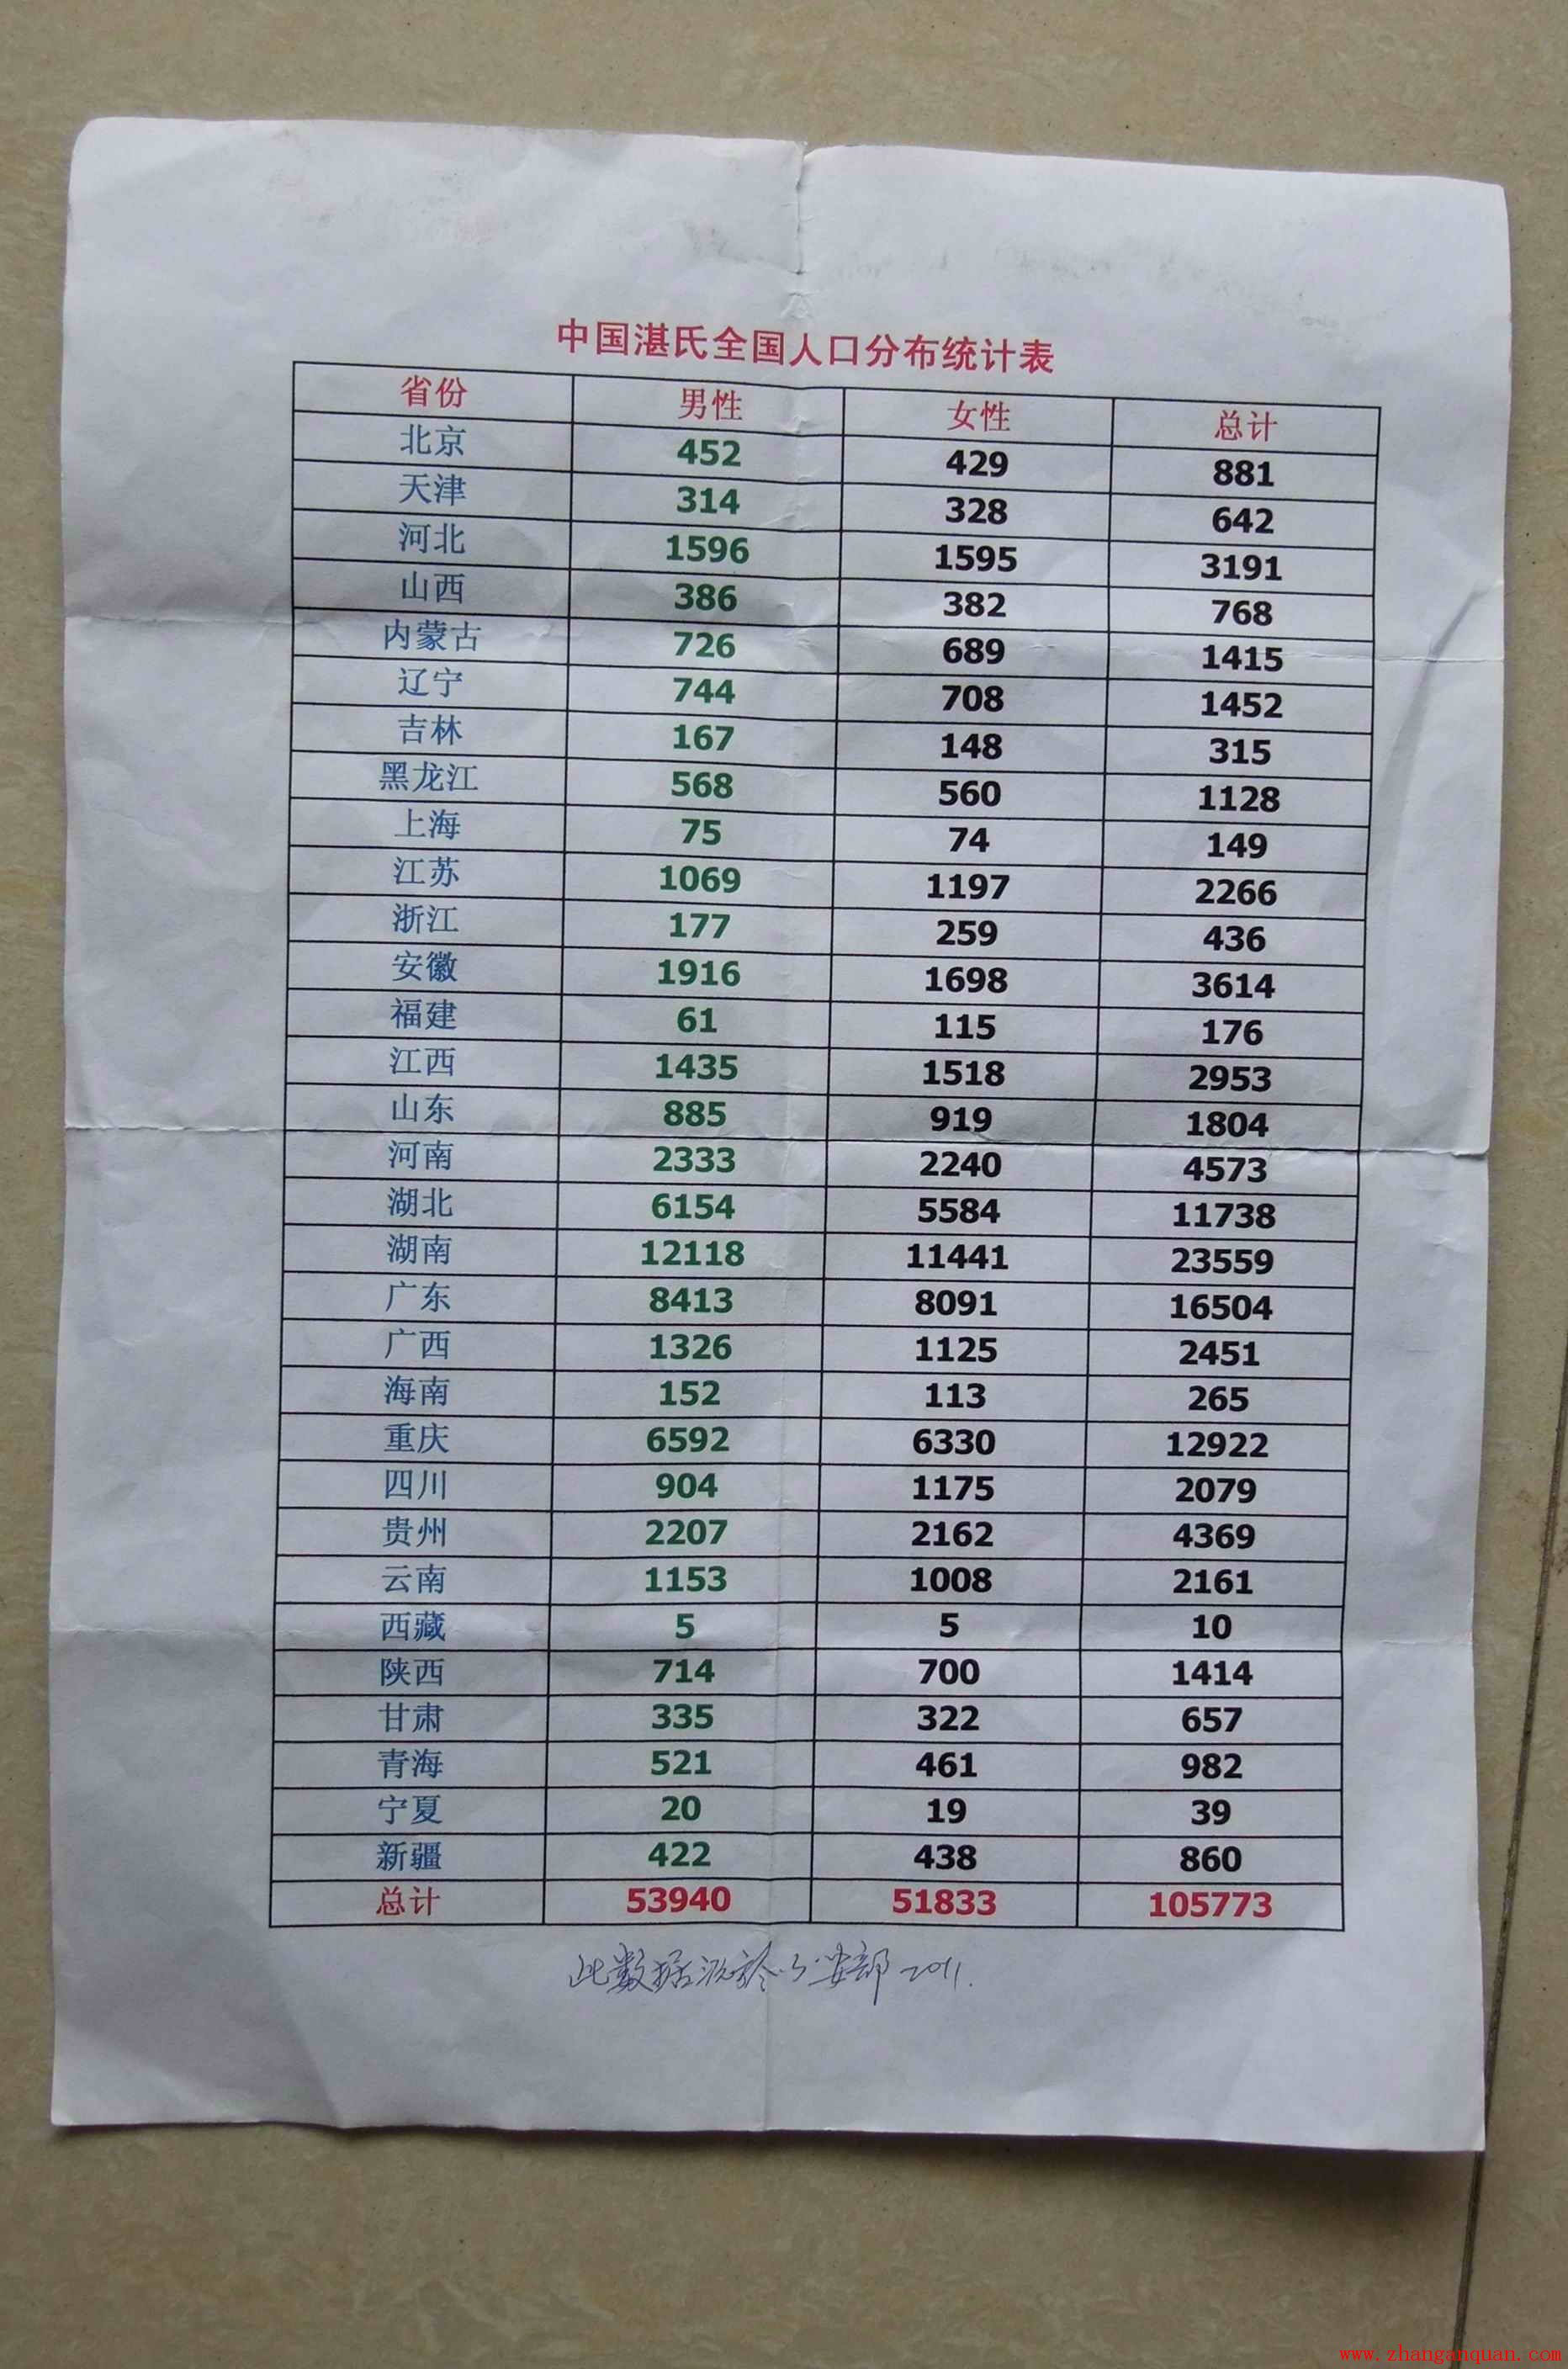 中国湛氏全国人口分布统计表
省份 男性 女性 总计
北京 452 429 881
天津 314 328 642
河北 1596 1595 3191
山西 386 382 768
内蒙古 726 689 1415
辽宁 744 708 1452
吉林 167 148 315
黑龙江 568 560 1128
上海 75 74 149
江苏 1069 1197 2266
浙江 177 259 436
安徽 1916 1698 3614
福建 61 115 176
江西 1435 1518 2953
山东 885 919 1804
河南 2333 2240 4573
湖北 6154 5584 11738
湖南 12118 11441 23559
广东 8413 8091 16504
广西 1326 1125 2451
海南 152 113 265
重庆 6592 6330 12922
四川 904 1175 2079
贵州 2207 2162 4369
云南 1153 1008 2161
西藏 5 5 10
陕西 714 700 1414
甘肃 335 322 657
青海 521 461 982
宁夏 20 19 39
新疆 422 438 860
总计 53940 51833 105773
此数据源於公安部 2011.
www.zhanganquan.com